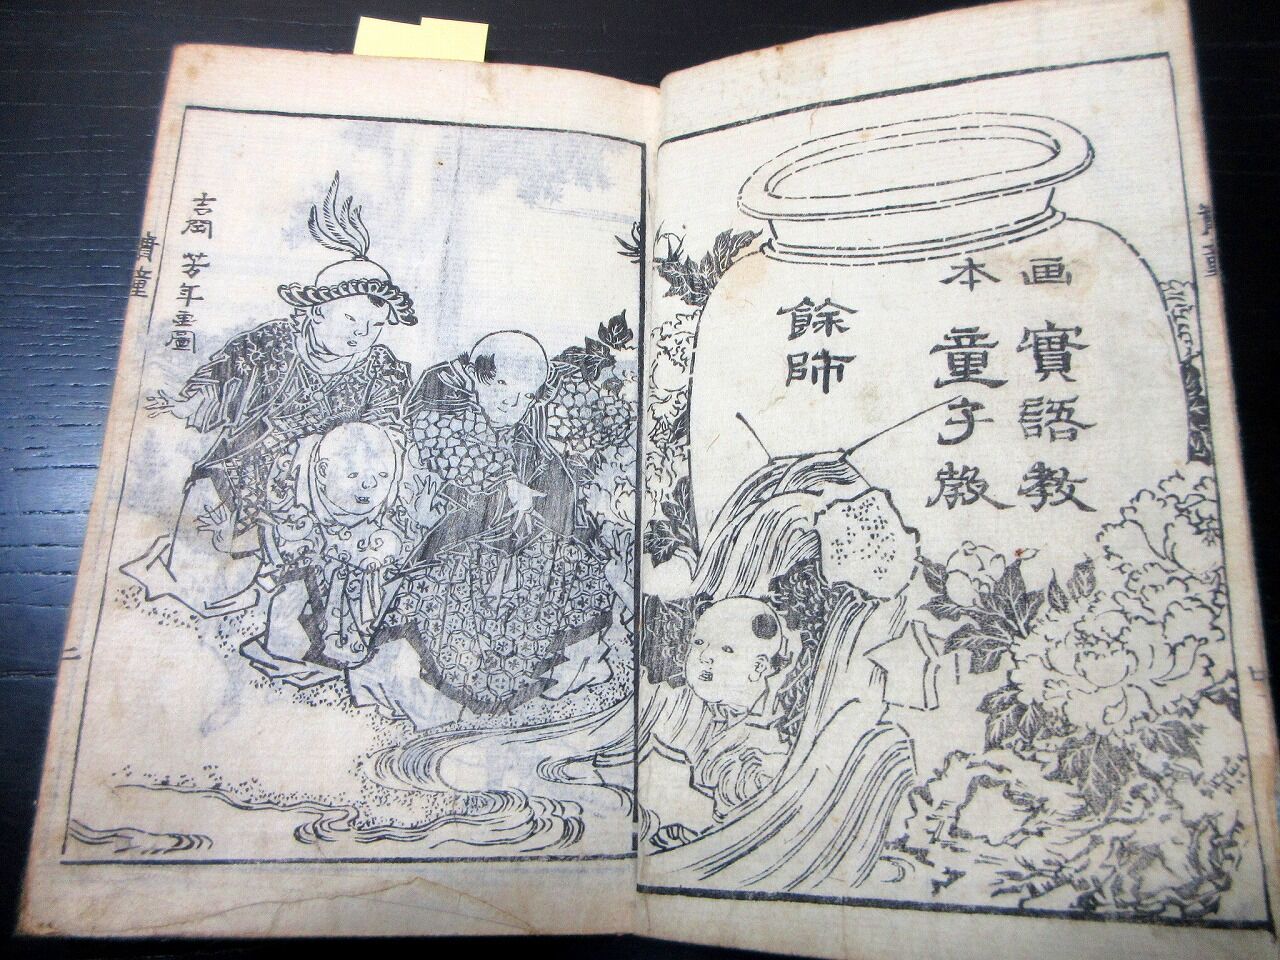 画本
實語教
童子教
餘師
吉岡芳年画圖
實童
二